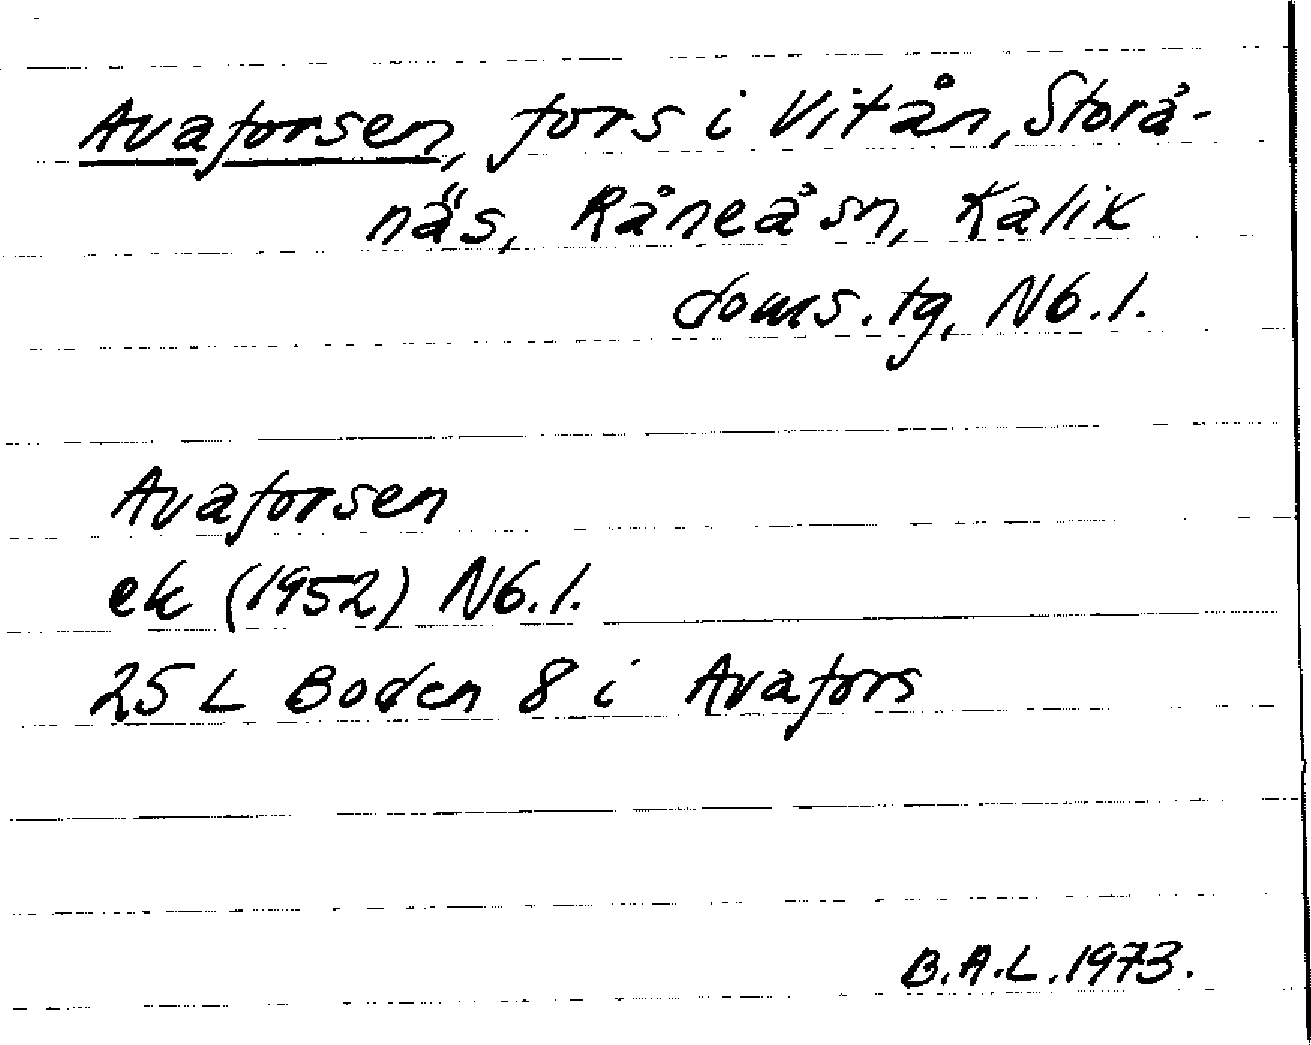 Avaforsen, fors i Vitån, Storå-
näs, Råneå sn, Kalix
doms. tg, Nb. l.
Avaforsen
ek (1952) Nb. l.
25 L Boden 8 i Avafors
B.A.L. 1973.